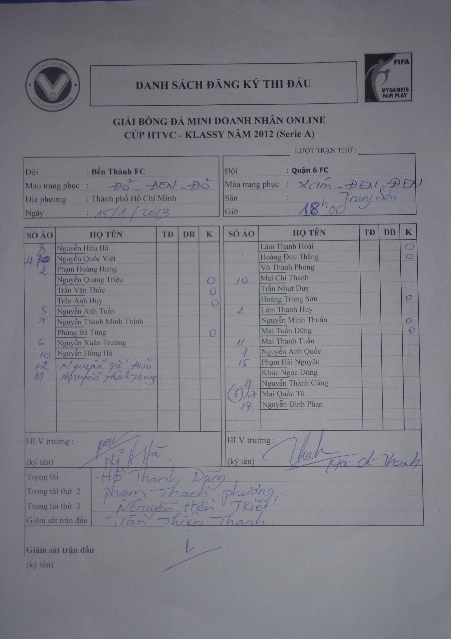 DANH SÁCH ĐĂNG KÝ THI ĐẤU
FIFA
MY GAME IS
FAIR PLAY
GIẢI BÓNG ĐÁ MINI DOANH NHÂN ONLINE
CÚP HTVC - KLASSY NĂM 2012 (Serie A)
LƯỢT TRẬN THỨ:
Đội : Bến Thành FC
Màu trang phục : ĐỎ - ĐEN - ĐỎ
Địa phương : Thành phố Hồ Chí Minh
Ngày : 15/1/2013
Đội : Quận 6 FC
Màu trang phục : XÁM - ĐEN - ĐEN
Sân : Trung Sơn
Giờ : 18h00
SỐ ÁO HỌ TÊN TĐ DB K
8 Nguyễn Hữu Hà
Nguyễn Quốc Việt
2 Phạm Hoàng Hưng
Nguyễn Quang Triệu 0
Trần Văn Thức 0
Trần Anh Huy 0
5 Nguyễn Anh Tuấn
Nguyễn Thanh Minh Thịnh
Phùng Bá Tùng 0
6 Nguyễn Xuân Trường
10 Nguyễn Hồng Hà
12 Nguyễn
Nguyễn
SỐ ÁO HỌ TÊN TĐ DB K
Lâm Thanh Hoài 0
Hoàng Đức Thắng 0
Võ Thanh Phong
10 Mai Chí Thanh
Trần Nhựt Duy
Hoàng Trung Sơn 0
2 Lâm Thanh Huy
Nguyễn Minh Thuấn 0
Mai Tuấn Dũng 0
11 Mai Thanh Tuấn
1 Nguyễn Anh Quốc
15 Phạm Hải Nguyên
Khúc Ngọc Dũng
Nguyễn Thành Công
Mai Quốc Tú
14 Nguyễn Đình Phan
HLV trưởng :
(ký tên)
HLV trưởng :
(ký tên)
Trọng tài Hồ Thanh Dũng
Trọng tài thứ 2 Phạm Thanh Phương
Trọng tài thứ 3 Nguyễn Hiền Triết
Giám sát trận đấu Trần Thiện Thanh
Giám sát trận đấu
(ký tên)